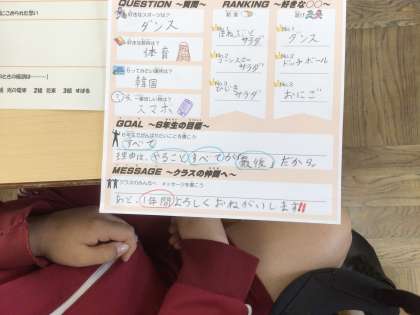 QUESTION ～質問～
好きなスポーツは？
ダンス
好きな教科は？
体育
行ってみたい国は？
韓国
今、一番欲しい物は？
スマホ
RANKING ～好きな○○～
給食
No.1
サラダ
No.2
コーンスープ
サラダ
No.3
ひじき
サラダ
遊び
No.1
ダンス
No.2
ドッチボール
No.3
おにごっ
GOAL ～6年生の目標～
6年生でがんばりたいことを書こう
すべて
理由は、やることすべてが最後だから。
MESSAGE ～クラスの仲間へ～
クラスのみんなへ メッセージを書こう
あと、1年間よろしくおねがいします!!